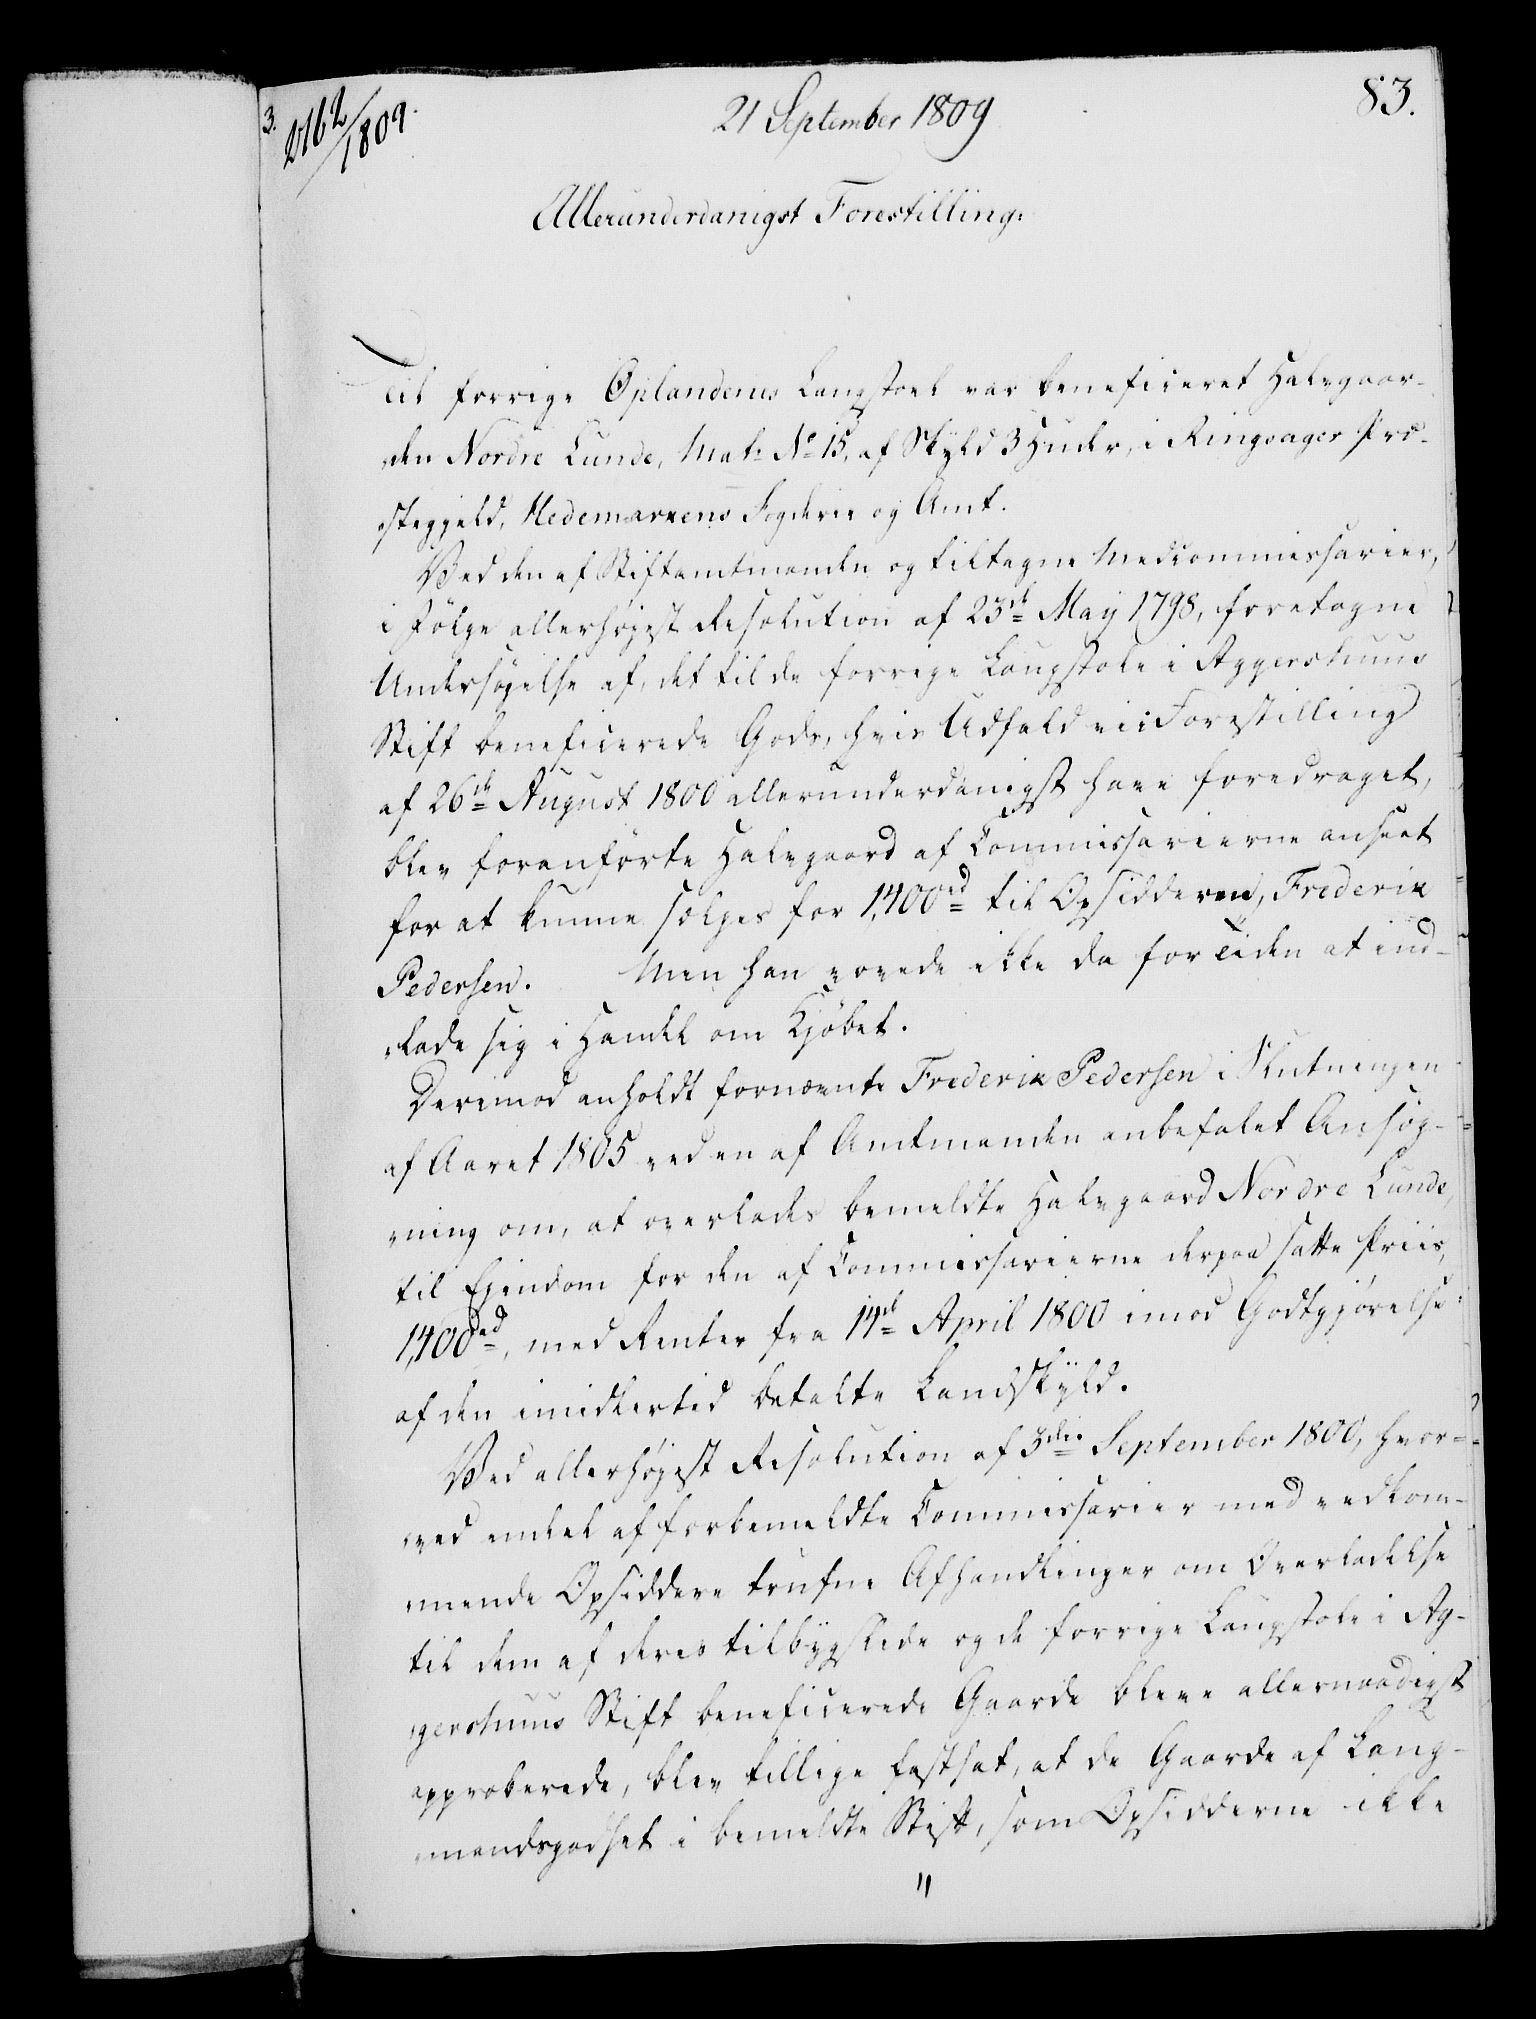 3.
2162/1809.
21 September 1809
83.
Allerunderdanigst Forestilling.
Til forrige Oplandenes Laugstoel var beneficeret Halvgaar-
den Nordre Lunde, Mat: No 15, af Skyld 3 Huder, i Ringsager Præ-
stegjeld, Hedemarkens Fogderie og Amt.
Ved den af Stiftamtmanden og tiltagne Medcommissarier,
i Følge allerhøjest Resolution af 23de May 1798, foretagne
Undersøgelse af, det til de forrige Laugstole i Aggershuus
Stift beneficerede Gods, hvis Udfald vi i Forestilling
af 26de August 1800 allerunderdanigst have foredraget,
blev foranførte Halvgaard af Commissarierne anseet
for at kunne sælges for 1,400rd til Opsidderen, Frederik
Pedersen. Men han vovede ikke da for Tiden at ind-
lade sig i Handel om Kjøbet.
Derimod anholdt fornævnte Frederik Pedersen i Slutningen
af Aaret 1805 ved en af Amtmanden anbefalet Ansøg-
ning om, at overlades bemeldte Halvgaard Nordre Lunde,
til Ejendom for den af Commissarierne derpaa satte Priis,
1,400rd, med Renter fra 14de April 1800 imod Godtgjørelse
af den imidlertid betalte Landskyld.
Ved allerhøjest Resolution af 3die September 1800, hvor-
ved endeel af forbemeldte Commissarier med vedkom-
mende Opsiddere trufne Afhandlinger om Overladelse
til dem af deres tilbygslede og de forrige Laugstole i Ag-
gershuus Stift beneficerede Gaarde bleve allernaadigst
approberede, blev tillige fastsat, at de Gaarde af Laug-
mandsgodset i bemeldte Stift, som Opsidderne ikke
"